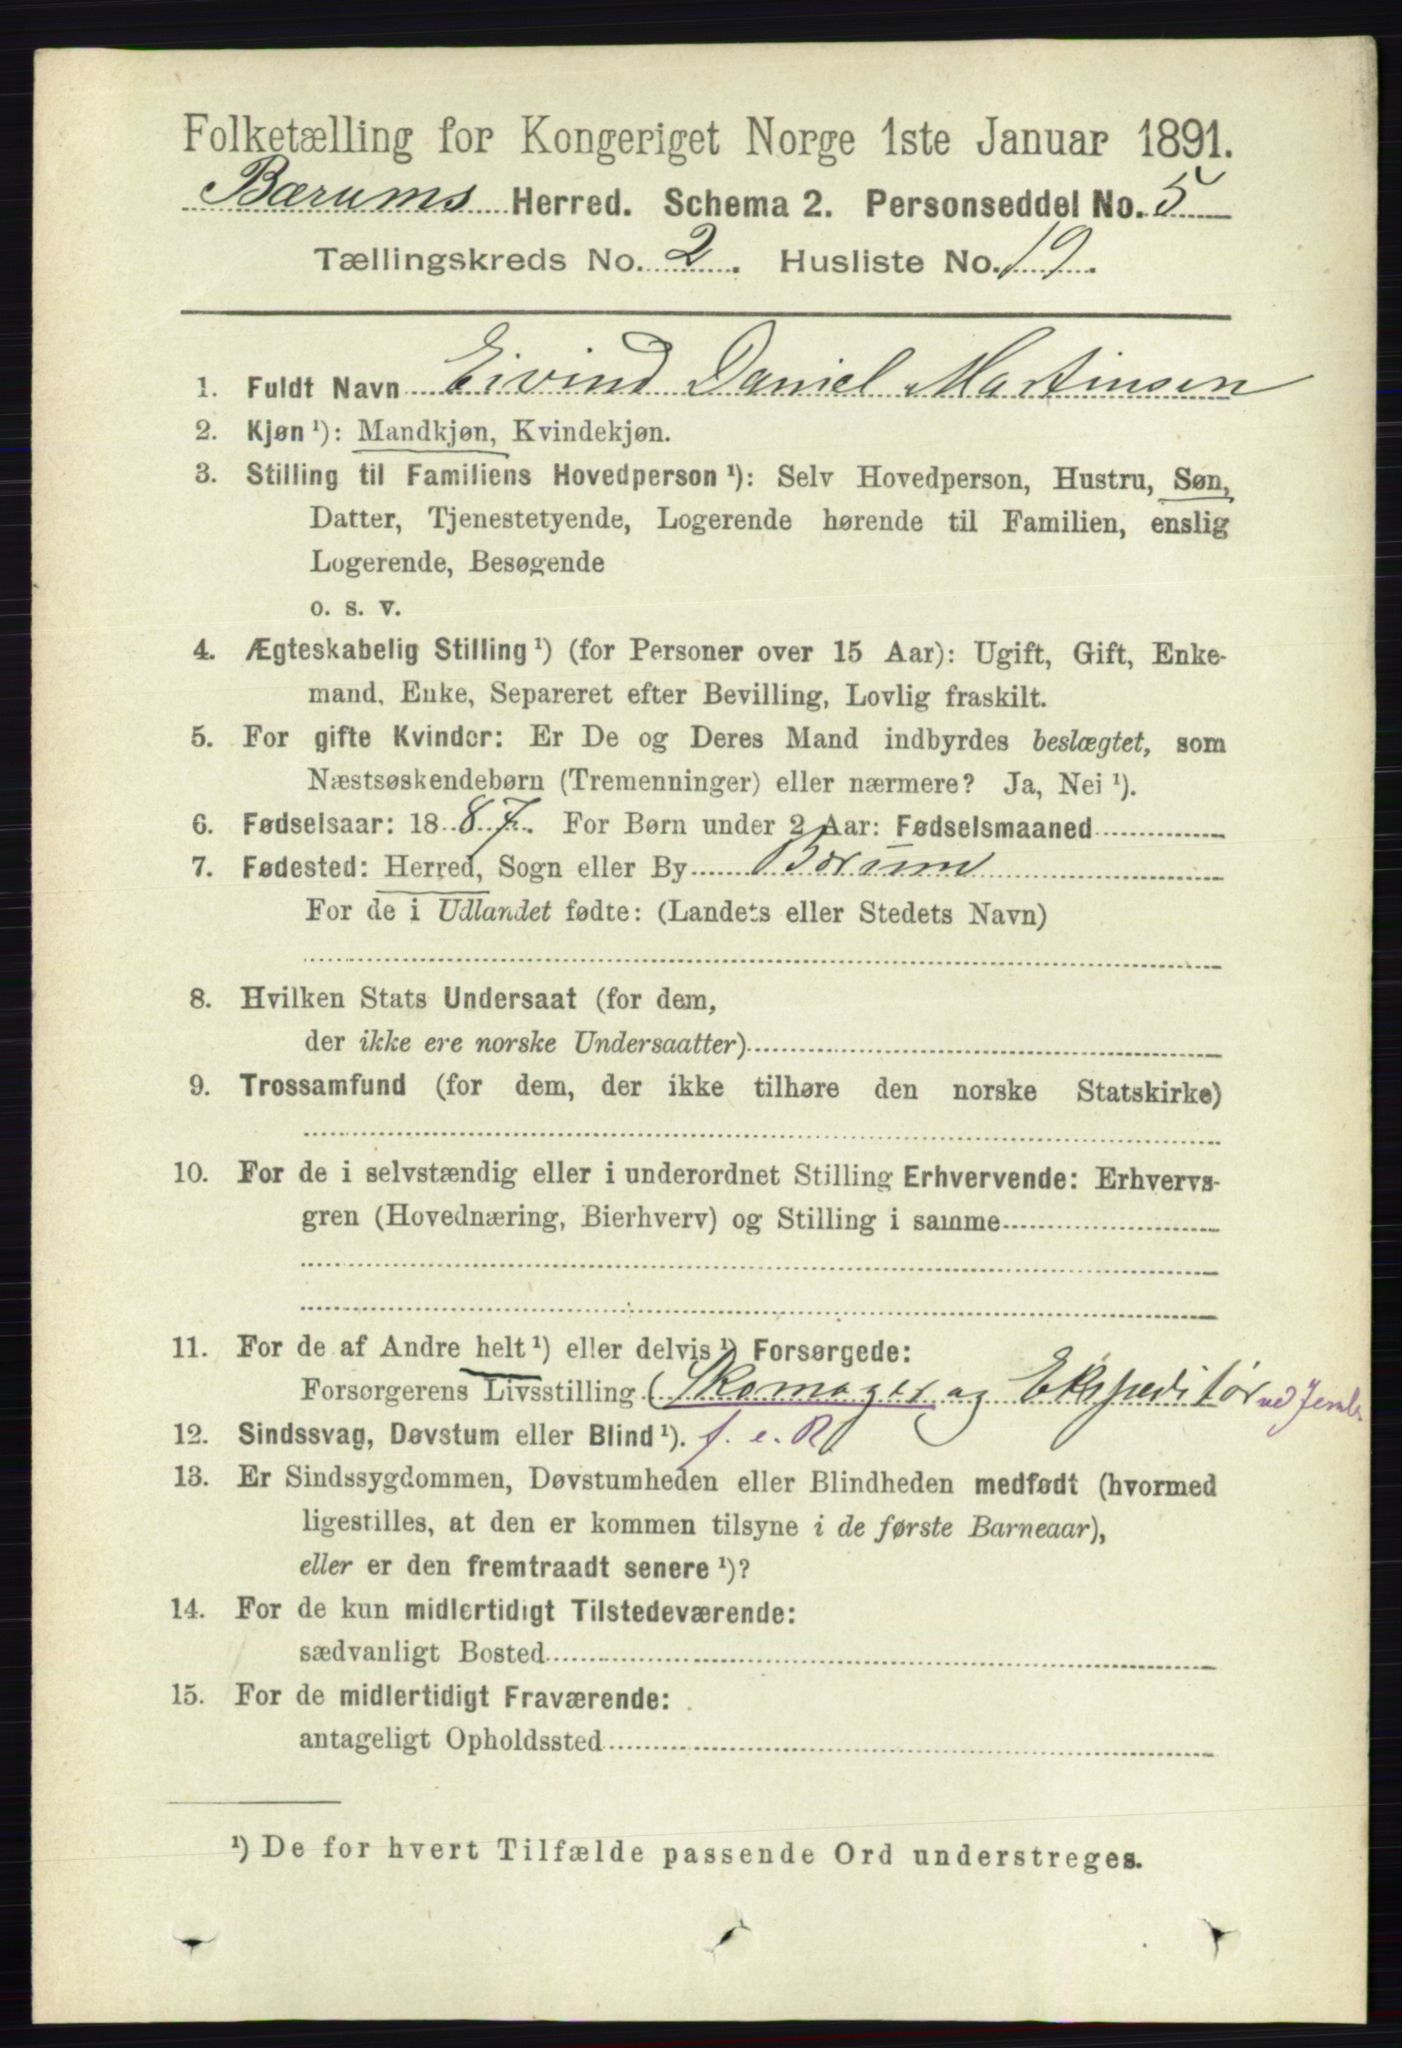 Folketælling for Kongeriget Norge 1ste Januar 1891.
Bærums Herred. Schema 2. Personseddel No. 5
Tællingskreds No. 2. Husliste No. 19.
1. Fuldt Navn Eivind Daniel Martinsen
2. Kjøn¹): Mandkjøn, Kvindekjøn.
3. Stilling til Familiens Hovedperson¹): Selv Hovedperson, Hustru, Søn,
Datter, Tjenestetyende, Logerende hørende til Familien, enslig
Logerende, Besøgende
o. s. v.
4. Ægteskabelig Stilling¹) (for Personer over 15 Aar): Ugift, Gift, Enke-
mand, Enke, Separeret efter Bevilling, Lovlig fraskilt.
5. For gifte Kvinder: Er De og Deres Mand indbyrdes beslægtet, som
Næstsøskendebørn (Tremenninger) eller nærmere? Ja, Nei¹).
6. Fødselsaar: 1887. For Børn under 2 Aar: Fødselsmaaned
7. Fødested: Herred, Sogn eller By Bærum
For de i Udlandet fødte: (Landets eller Stedets Navn)
8. Hvilken Stats Undersaat (for dem,
der ikke ere norske Undersaatter)
9. Trossamfund (for dem, der ikke tilhøre den norske Statskirke)
10. For de i selvstændig eller i underordnet Stilling Erhvervende: Erhvervs-
gren (Hovednæring, Bierhverv) og Stilling i samme
11. For de af Andre helt¹) eller delvis¹) Forsørgede:
Forsørgerens Livsstilling Skomager og Ekspeditør ved Jernb
12. Sindssvag, Døvstum eller Blind¹). f. e. R
13. Er Sindssygdommen, Døvstumheden eller Blindheden medfødt (hvormed
ligestilles, at den er kommen tilsyne i de første Barneaar),
eller er den fremtraadt senere¹)?
14. For de kun midlertidigt Tilstedeværende:
sædvanligt Bosted
15. For de midlertidigt Fraværende:
antageligt Opholdssted
¹) De for hvert Tilfælde passende Ord understreges.